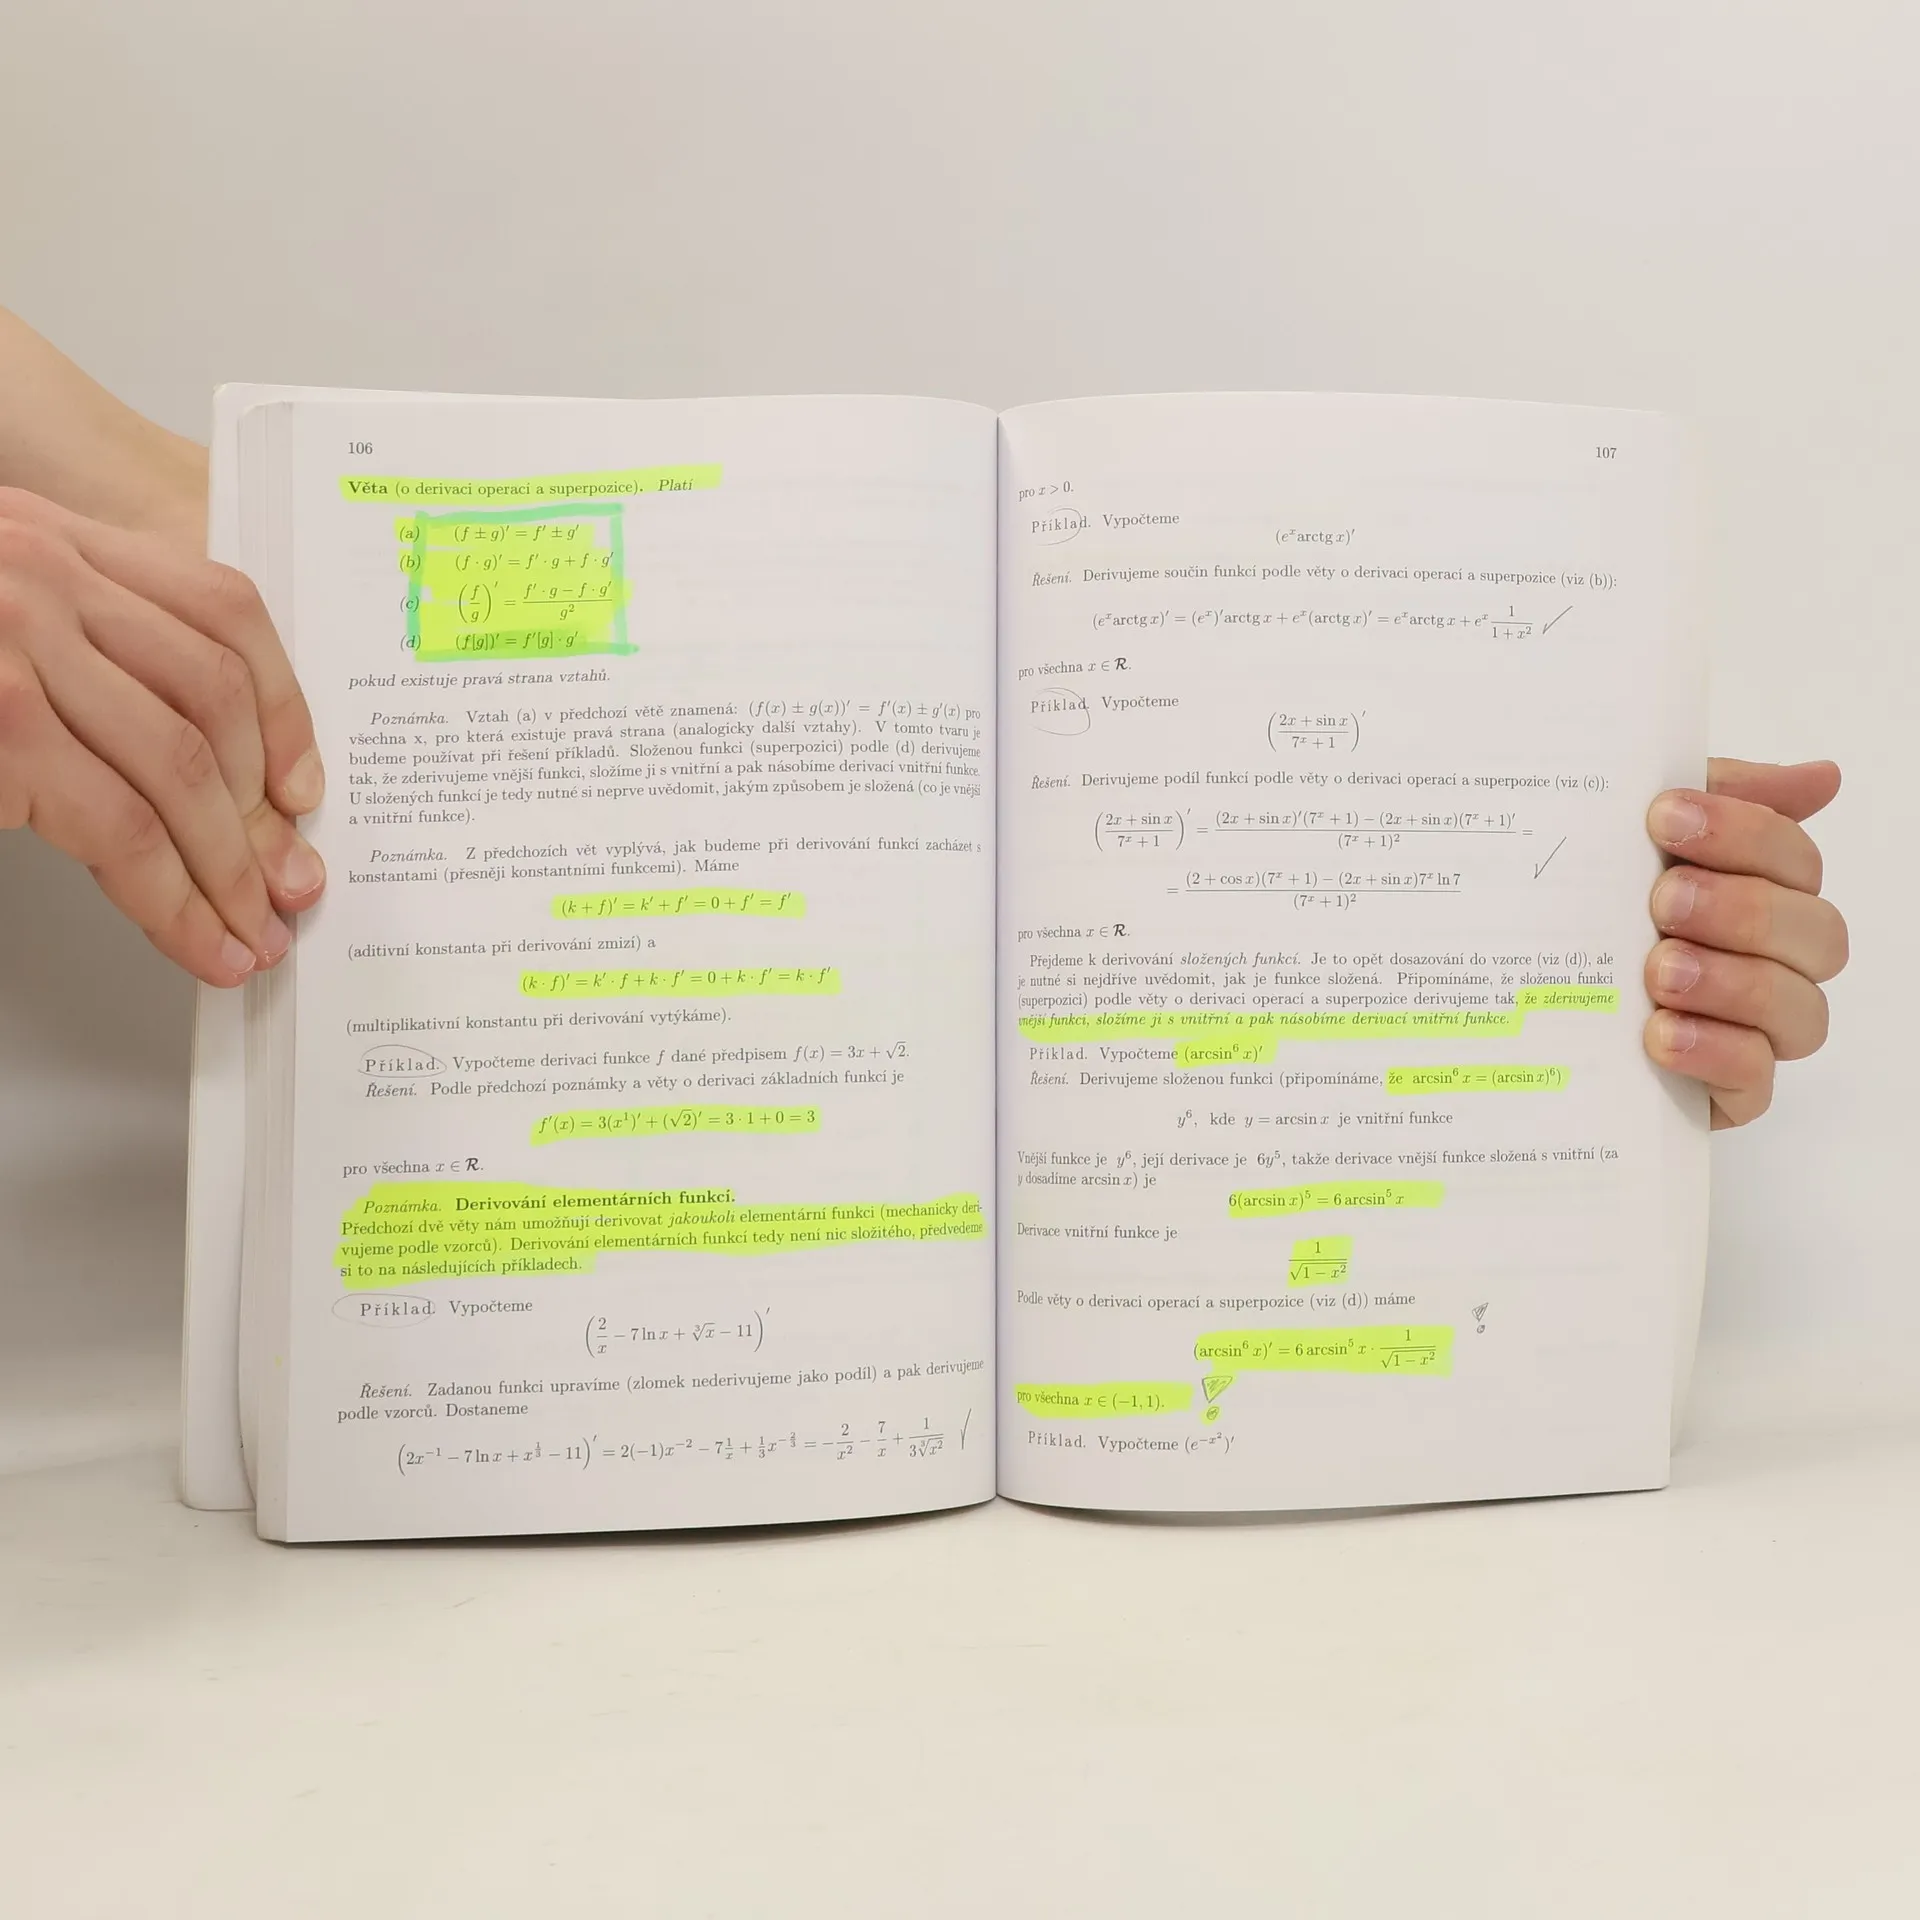 106
Věta (o derivaci operací a superpozice). Platí
(a) (f ± g)′ = f′ ± g′
(b) (f · g)′ = f′ · g + f · g′
(c) (f/g)′ = (f′ · g − f · g′)/g²
(d) (f[g])′ = f′[g] · g′
pokud existuje pravá strana vztahů.
Poznámka. Vztah (a) v předchozí větě znamená: (f(x) ± g(x))′ = f′(x) ± g′(x) pro
všechna x, pro která existuje pravá strana (analogicky další vztahy). V tomto tvaru je
budeme používat při řešení příkladů. Složenou funkci (superpozici) podle (d) derivujeme
tak, že zderivujeme vnější funkci, složíme ji s vnitřní a pak násobíme derivací vnitřní funkce.
U složených funkcí je tedy nutné si neprve uvědomit, jakým způsobem je složená (co je vnější
a vnitřní funkce).
Poznámka. Z předchozích vět vyplývá, jak budeme při derivování funkcí zacházet s
konstantami (přesněji konstantními funkcemi). Máme
(k + f)′ = k′ + f′ = 0 + f′ = f′
(aditivní konstanta při derivování zmizí) a
(k · f)′ = k′ · f + k · f′ = 0 + k · f′ = k · f′
(multiplikativní konstantu při derivování vytýkáme).
Příklad. Vypočteme derivaci funkce f dané předpisem f(x) = 3x + √2.
Řešení. Podle předchozí poznámky a věty o derivaci základních funkcí je
f′(x) = 3(x¹)′ + (√2)′ = 3 · 1 + 0 = 3
pro všechna x ∈ R.
Poznámka. Derivování elementárních funkcí.
Předchozí dvě věty nám umožňují derivovat jakoukoli elementární funkci (mechanicky deri-
vujeme podle vzorců). Derivování elementárních funkcí tedy není nic složitého, předvedeme
si to na následujících příkladech.
Příklad. Vypočteme
(2/x − 7 ln x + ∛x − 11)′
Řešení. Zadanou funkci upravíme (zlomek nederivujeme jako podíl) a pak derivujeme
podle vzorců. Dostaneme
(2x⁻¹ − 7 ln x + x^{1/3} − 11)′ = 2(−1)x⁻² − 7 1/x + 1/3 x^{−2/3} = −2/x² − 7/x + 1/(3∛x²)
107
pro x > 0.
Příklad. Vypočteme
(eˣ arctg x)′
Řešení. Derivujeme součin funkcí podle věty o derivaci operací a superpozice (viz (b)):
(eˣ arctg x)′ = (eˣ)′ arctg x + eˣ (arctg x)′ = eˣ arctg x + eˣ 1/(1 + x²)
pro všechna x ∈ R.
Příklad. Vypočteme
((2x + sin x)/(7ˣ + 1))′
Řešení. Derivujeme podíl funkcí podle věty o derivaci operací a superpozice (viz (c)):
((2x + sin x)/(7ˣ + 1))′ = ((2x + sin x)′(7ˣ + 1) − (2x + sin x)(7ˣ + 1)′)/(7ˣ + 1)² =
= ((2 + cos x)(7ˣ + 1) − (2x + sin x)7ˣ ln 7)/(7ˣ + 1)²
pro všechna x ∈ R.
Přejdeme k derivování složených funkcí. Je to opět dosazování do vzorce (viz (d)), ale
je nutné si nejdříve uvědomit, jak je funkce složená. Připomínáme, že složenou funkci
(superpozici) podle věty o derivaci operací a superpozice derivujeme tak, že zderivujeme
vnější funkci, složíme ji s vnitřní a pak násobíme derivací vnitřní funkce.
Příklad. Vypočteme (arcsin⁶ x)′
Řešení. Derivujeme složenou funkci (připomínáme, že arcsin⁶ x = (arcsin x)⁶)
y⁶, kde y = arcsin x je vnitřní funkce
Vnější funkce je y⁶, její derivace je 6y⁵, takže derivace vnější funkce složená s vnitřní (za
y dosadíme arcsin x) je
6(arcsin x)⁵ = 6 arcsin⁵ x
Derivace vnitřní funkce je
1/√(1 − x²)
Podle věty o derivaci operací a superpozice (viz (d)) máme
!
(arcsin⁶ x)′ = 6 arcsin⁵ x · 1/√(1 − x²)
pro všechna x ∈ (−1, 1). !
Příklad. Vypočteme (e^{−x²})′